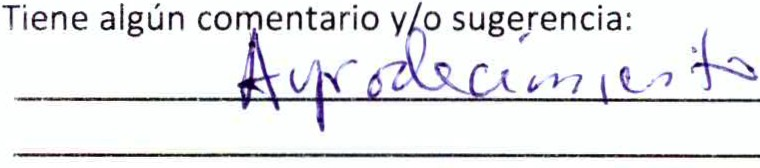 Tiene algún comentario y/o sugerencia:
Agradecimiento